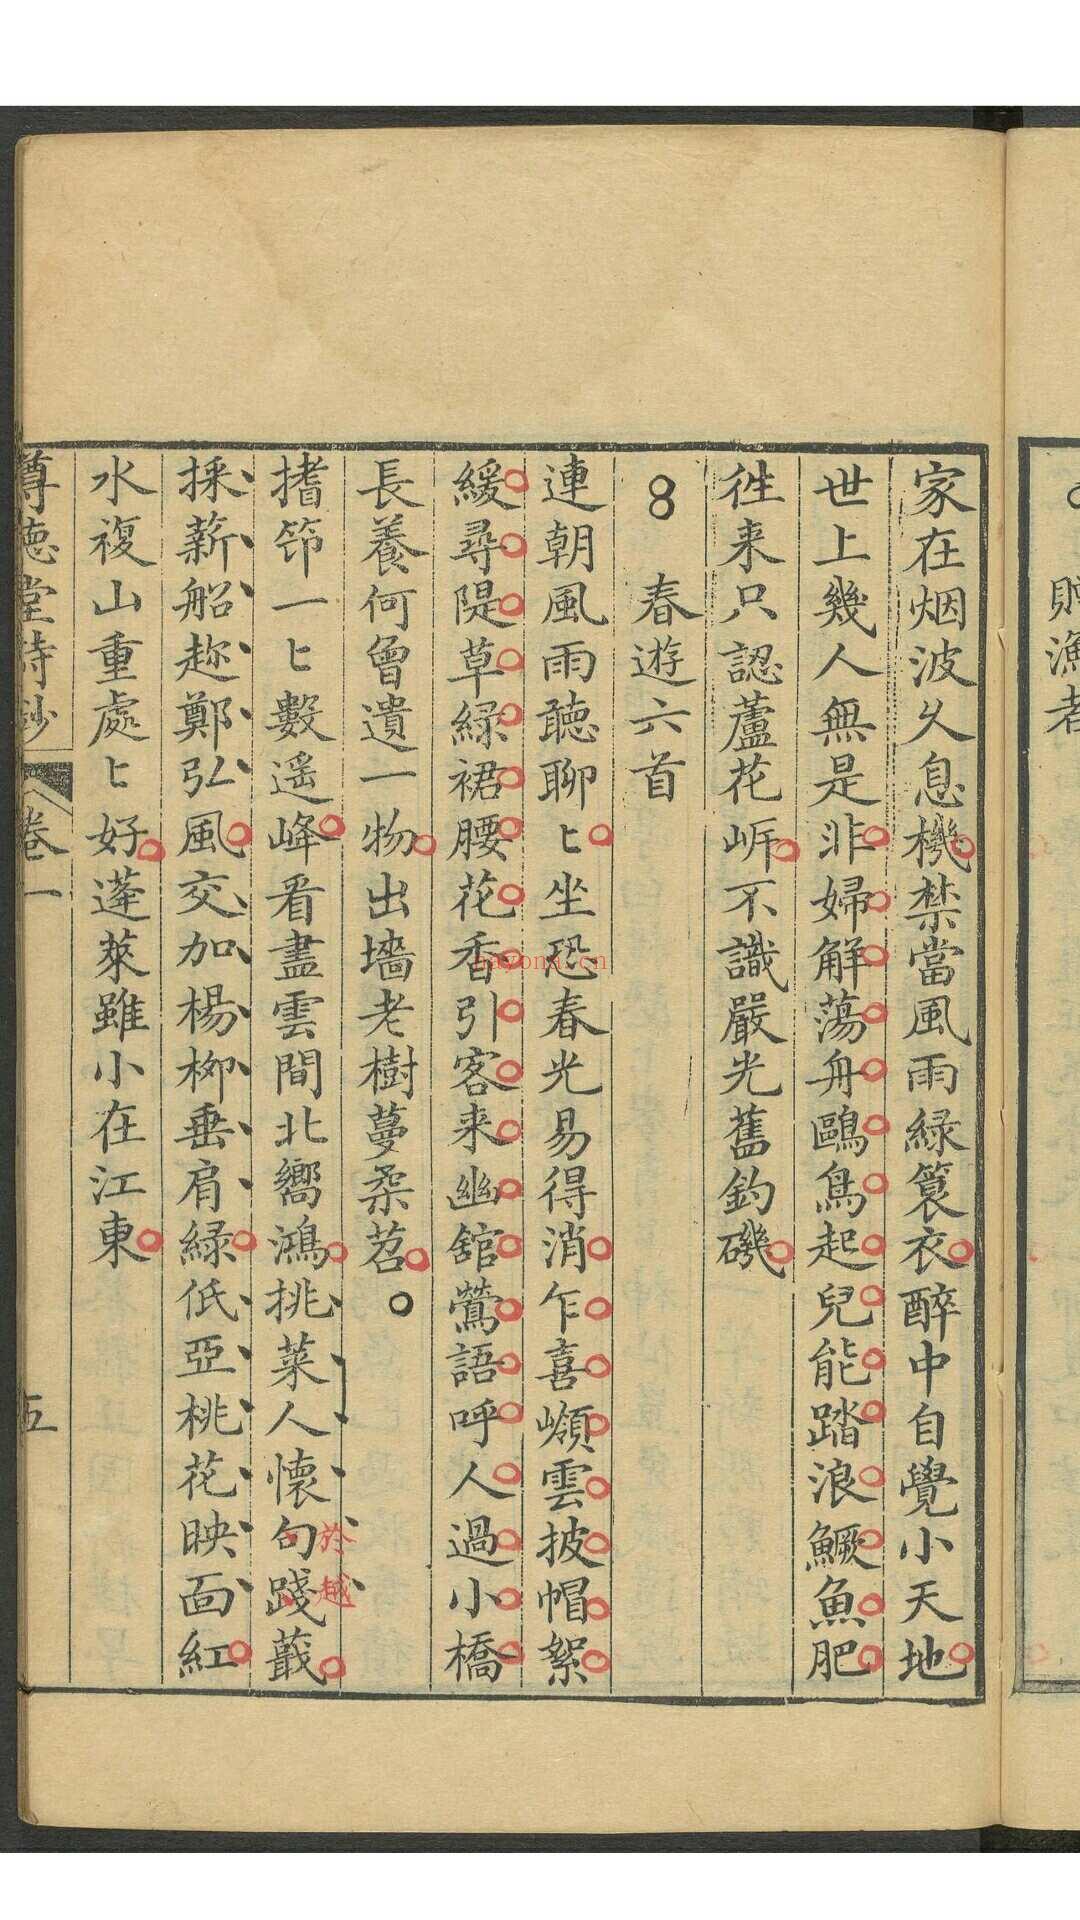 贈漁者
家在烟波久息機禁當風雨綠簑衣醉中自覺小天地
世上幾人無是非婦解蕩舟鷗鳥起兒能踏浪鱖魚肥
徃来只認蘆花岍不識嚴光舊釣磯
春遊六首
連朝風雨聽聊〻坐恐春光易得消乍喜嶺雲披帽絮
緩尋隄草綠裙腰花香引客来幽舘鶯語呼人過小橋
長養何曾遺一物出墻老樹蔓柔苕
搘笻一〻數遥峰看盡雲間北嚮鴻挑菜人懷句踐蕺
於越
採薪船趂鄭弘風交加楊柳垂肩綠低亞桃花映面紅
水複山重處〻好蓬萊雖小在江東
尊德堂詩鈔 卷一 五
nayona.cn